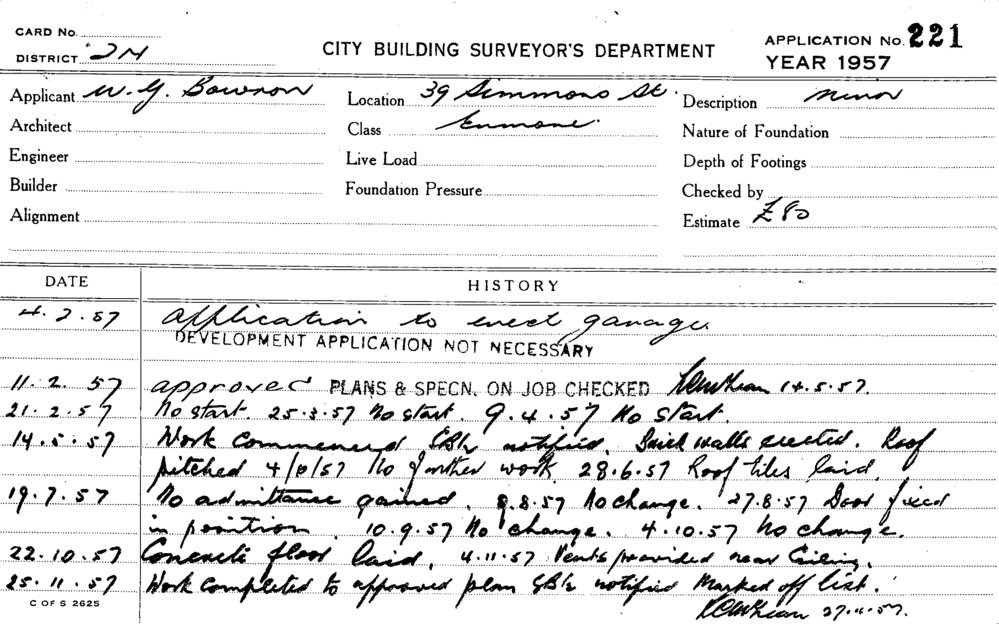 CARD No.
DISTRICT 2N
CITY BUILDING SURVEYOR'S DEPARTMENT
APPLICATION No. 221
YEAR 1957
Applicant W. G. Bowron
Location 39 Simmons St.
Description Minor
Architect
Class Enmore.
Nature of Foundation
Engineer
Live Load
Depth of Footings
Builder
Foundation Pressure
Checked by
Alignment
Estimate £80
DATE
HISTORY
4.2.57 Application to erect garage.
DEVELOPMENT APPLICATION NOT NECESSARY
11.2.57 approved PLANS & SPECN. ON JOB CHECKED 14.5.57.
21.2.57 No start. 25.3.57 No start. 9.4.57 No start.
14.5.57 Work Commenced notified. Brick walls erected. Roof
pitched 4/6/57 No further work. 28.6.57 Roof tiles laid.
19.7.57 No admittance gained. 9.8.57 No change. 27.8.57 Door fixed
in position. 10.9.57 No change. 4.10.57 No change.
22.10.57 Concrete floor laid. 4.11.57 Vents provided near Ceiling.
25.11.57 Work completed to approved plan notified Marked off list.
C OF S 2625
27.11.57.